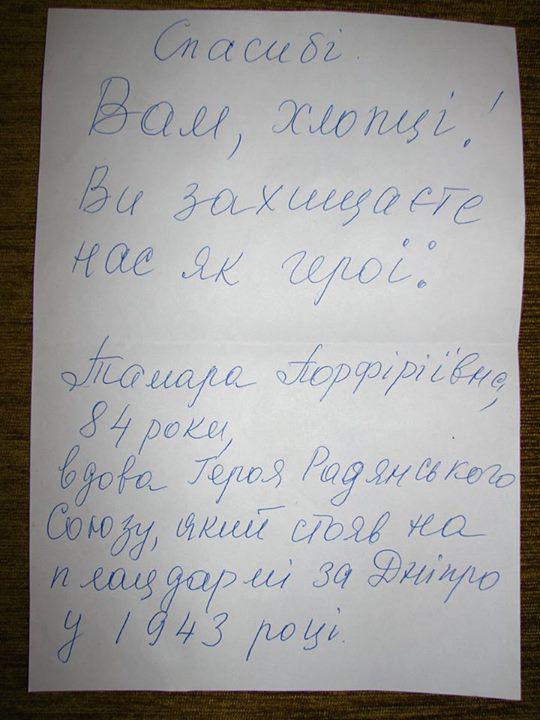 Спасибі.
Вам, хлопці!
Ви захищаєте
нас як герої.
Тамара Порфіріївна,
84 роки,
вдова Героя Радянського
Союзу, який стояв на
плацдармі за Дніпро
у 1943 році.